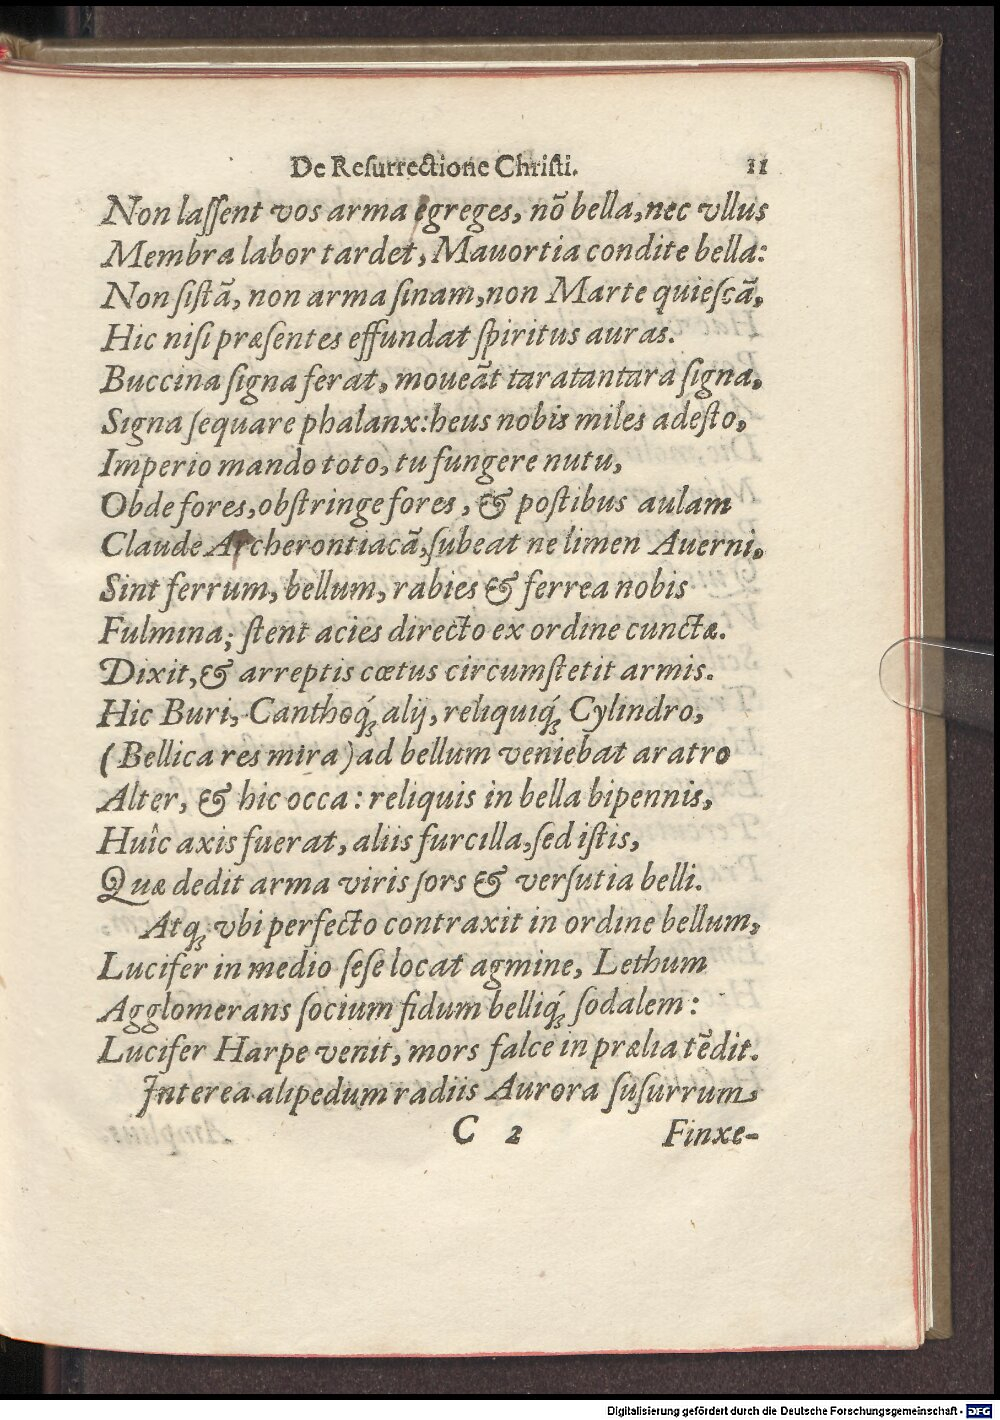 De Reſurrectione Chriſti. 11
Non laſſent vos arma egreges, nõ bella, nec vllus
Membra labor tardet, Mauortia condite bella:
Non ſiſtã, non arma ſinam, non Marte quieſcã,
Hic niſi præſentes effundat ſpiritus auras.
Buccina ſigna ferat, moueãt taratantara ſigna,
Signa ſequare phalanx: heus nobis miles adeſto,
Imperio mando toto, tu fungere nutu,
Obde fores, obſtringe fores, & poſtibus aulam
Claude Archerontiacã, ſubeat ne limen Auerni.
Sint ferrum, bellum, rabies & ferrea nobis
Fulmina; ſtent acies directo ex ordine cunctæ.
Dixit, & arreptis cœtus circumſtetit armis.
Hic Buri, Canthoq́; alij, reliquiq́; Cylindro,
(Bellica res mira) ad bellum veniebat aratro
Alter, & hic occa: reliquis in bella bipennis,
Huîc axis fuerat, aliis furcilla, ſed iſtis,
Quæ dedit arma viris ſors & verſutia belli.
Atq; vbi perfecto contraxit in ordine bellum,
Lucifer in medio ſeſe locat agmine, Lethum
Agglomerans ſocium fidum belliq́; ſodalem:
Lucifer Harpe venit, mors falce in prælia tẽdit.
Interea alipedum radiis Aurora ſuſurrum,
C 2 Finxe-
Digitalisierung gefördert durch die Deutsche Forschungsgemeinschaft - DFG